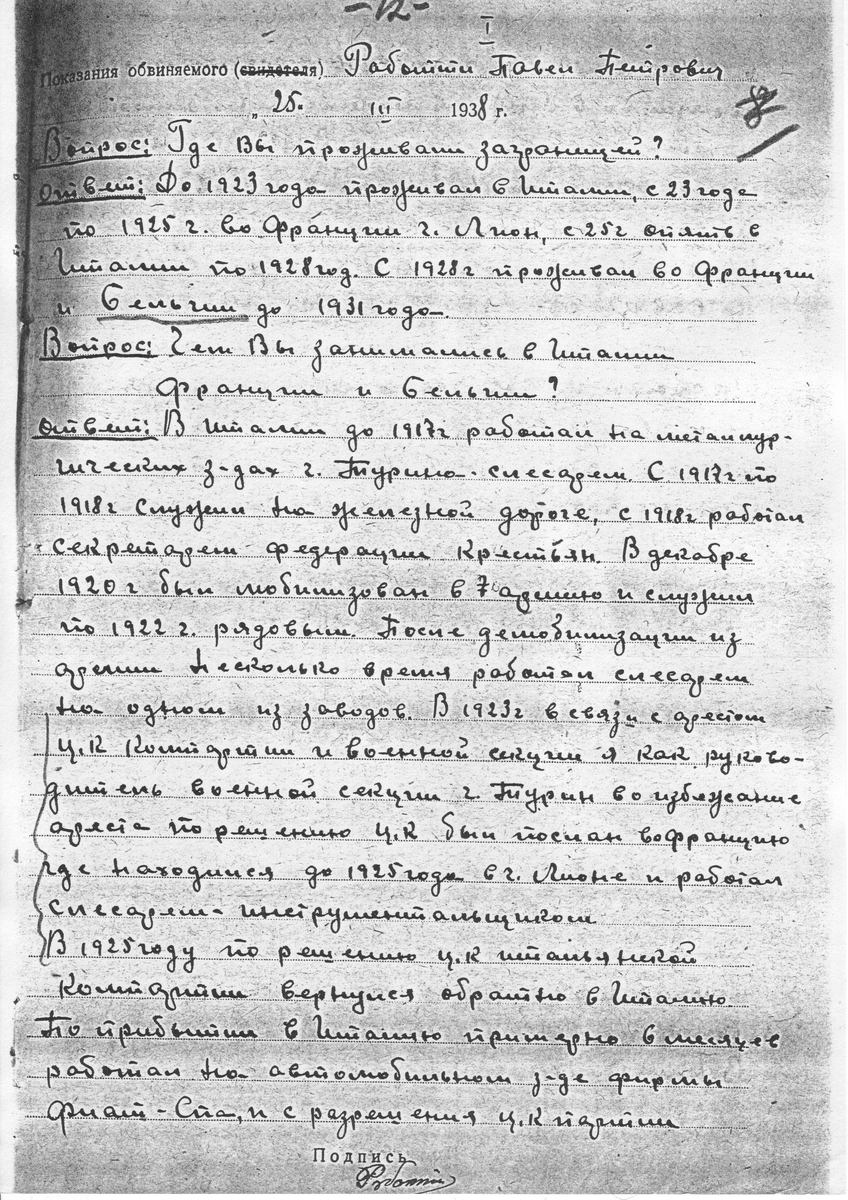 -12-
I
Показания обвиняемого (свидетеля) Работти Павел Петрович
„ 25. III 1938 г.
Вопрос: Где Вы проживали заграницей?
Ответ: До 1923 года проживал в Италии, с 23 года
по 1925 г. во Франции г. Лион, с 25 г опять в
Италии по 1928 год. С 1928 г проживал во Франции
и Бельгии до 1931 года.
Вопрос: Чем Вы занимались в Италии
Франции и Бельгии?
Ответ: В Италии до 1917 г работал на металлур-
гических з-дах г. Турина - слесарем. С 1917 г по
1918 г служил на железной дороге, с 1918 г работал
секретарем федерации Крестьян. В декабре
1920 г был мобилизован в 7 армию и служил
по 1922 г. рядовым. После демобилизации из
армии несколько время работал слесарем
на одном из заводов. В 1923 г в связи с арестом
Ц.К Компартии и военной секции я как руково-
дитель военной секции г. Турин во избежание
ареста по решению Ц.К был послан во Францию
где находился до 1925 года в г. Лионе и работал
слесарем - инструментальщиком
В 1925 году по решению Ц.К итальянской
Компартии вернулся обратно в Италию.
По прибытии в Италию примерно 6 месяцев
работал на автомобильном з-де фирмы
Фиат-Спа, и с разрешения Ц.К партии
Подпись
Роботти